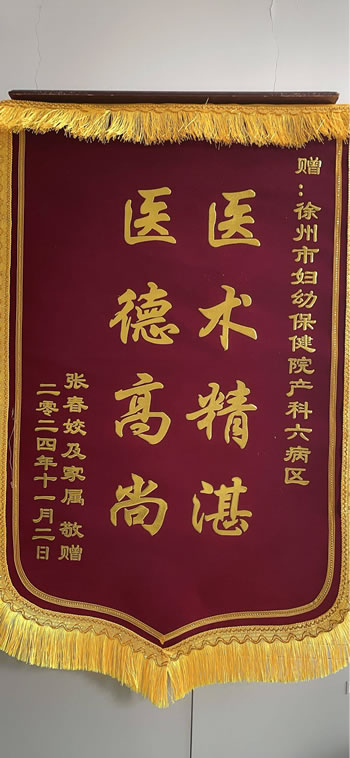 赠：徐州市妇幼保健院产科六病区
医术精湛
医德高尚
张春姣及家属 敬赠
二零二四年十一月二日